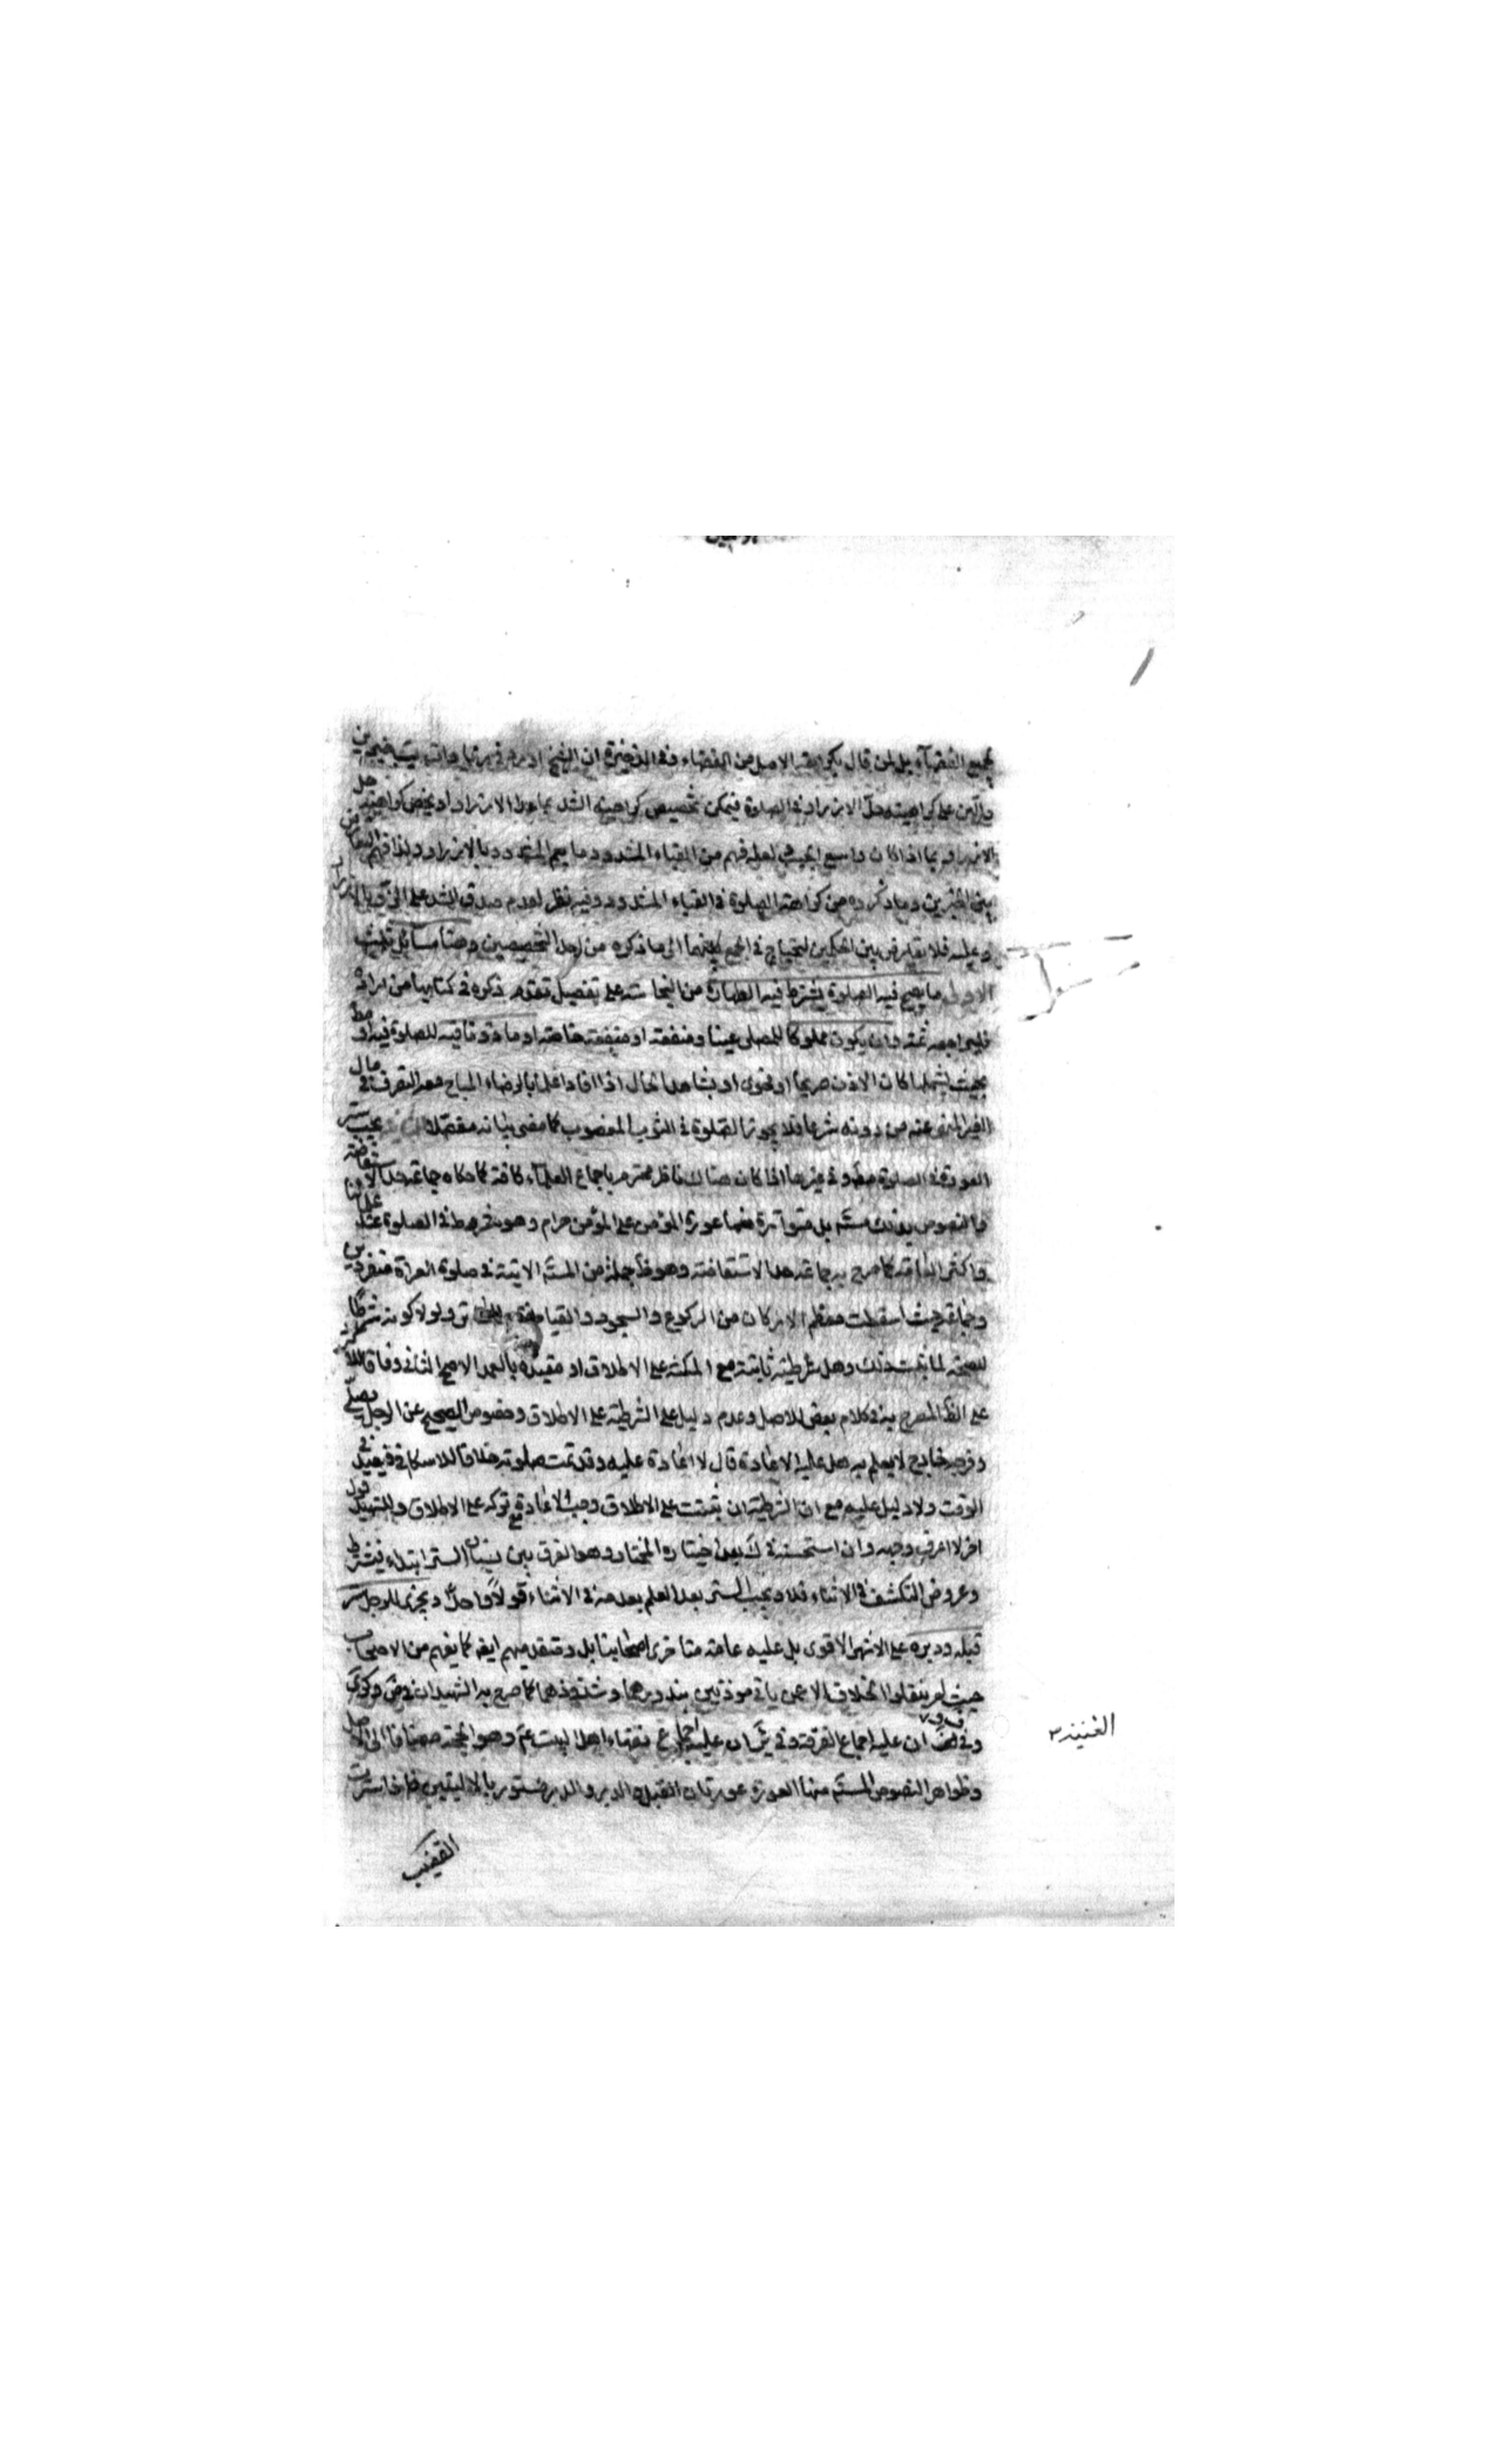 وإلّا من على كراهية حلّ الازرار في الصلوة فيمكن تخصيص كراهية الشد بما عدا الازرار او يخص كراهية حل
الازرار بما اذا كان واسع الجيب لعله فهم من القباء المشدود ما يعم المشدود بالازرار ولذا فهم التعارض
بين الخبرين وما ذكروه من كراهة الصلوة في القباء المشدود وفيه نظر لعدم صدق الشد على المزرور بالازرار
وعليه فلا تعارض بين الحكمين ليحتاج في الجمع بينهما الى ما ذكره من احد التخصيصين وهنا مسائل ثلث
الاولى ما يصح فيه الصلوة يشترط فيه الطهارة من النجاسة على تفصيل تقدم ذكره في كتابها من اراده
فليراجعه ثمة وان يكون مملوكا للمصلى عينا ومنفعة او منفعة خاصة او ماذونا فيه للصلوة فيه او مط
بحيث يشملها كان الاذن صريحا او فحوى او بشاهد الحال اذا افاد العلم بالرضاء المباح معه التصرف في مال
الغير المنهى عنه من دونه شرعا فلا يجوز الصلوة في الثوب المغصوب كما مضى بيانه مفصلا يجب ستر
العورة في الصلوة وفي غيرها اذا كان هناك ناظر محترم باجماع العلماء كافة كما حكاه جماعة حد الاستفاضة
والنصوص بذلك مستفيضة بل متواترة منها عورة المؤمن على المؤمن حرام وهو شرط في الصلوة عند علمائنا
واكثر العامة كما صرح به جماعة حد الاستفاضة وهو ظ جملة من المستفيضة الاتية في صلوة العراة منفردين
وجماعة حيث اسقطت معظم الاركان من الركوع والسجود والقيام ولولا كونه شرطا
للصحة لما ثبت ذلك وهل شرطيته ثابتة مع المكنة على الاطلاق او مقيدة بالعمد الاصح الثانى وفاقا للاكثر
على الظ المصرح به في كلام بعض للاصل وعدم دليل على الشرطية على الاطلاق وخصوص الصحيح عن الرجل يصلى
وفرجه خارج لا يعلم به هل عليه الاعادة قال لا اعادة عليه وقد تمت صلوته خلافا للاسكافى فيعيد في
الوقت ولا دليل عليه مع ان الشرطية ان ثبتت على الاطلاق وجب الاعادة مع تركه على الاطلاق وللشهيد قول
اخر لا اعرف وجهه وان استحسنه في ك بعد اختياره المختار وهو الفرق بين نسيان الستر ابتداء فيشترط
وعروض التكشف في الاثناء فلا ويجب الستر بعد العلم بعدمه في الاثناء قولا واحدا ويجزى للرجل ستر
قبله ودبره على الاشهر الاقوى بل عليه عامة متاخرى اصحابنا بل ومتقدميهم ايضا كما يفهم من الاصحاب
حيث لم ينقلوا الخلاف الا عمن ياتى موذنين بندورهما وشذوذهما كما صرح به الشهيدان في ض وكرى
وفي ف ان عليه اجماع الفرقة وفي ئر ان عليه اجماع فقهاء اهل البيت عم وهو الحجة مضافا الى الاصل
وظواهر النصوص المستفيضة منها العورة عورتان القبل والدبر والدبر مستور بالاليتين فاذا سترت
القضيب
الغنية